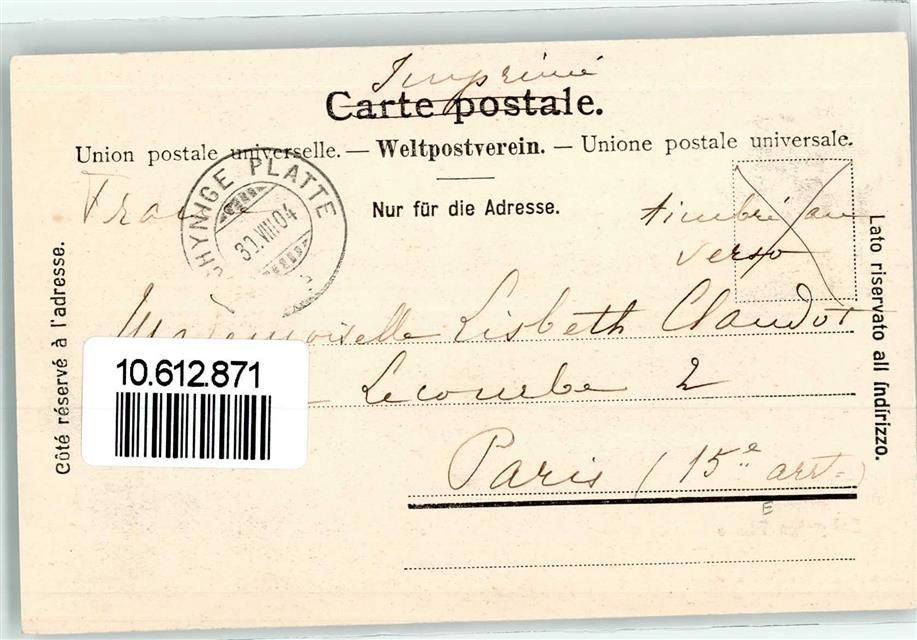 Imprimé
Carte postale.
Union postale universelle. — Weltpostverein. — Unione postale universale.
France
Nur für die Adresse.
timbré au
verso
SCHYNIGE PLATTE
30.VIII.04
Côté réservé à l'adresse.
Lato riservato all indirizzo.
Mademoiselle Lisbeth Claudot
10.612.871
Lecourbe 2
Paris (15e arrt)
E